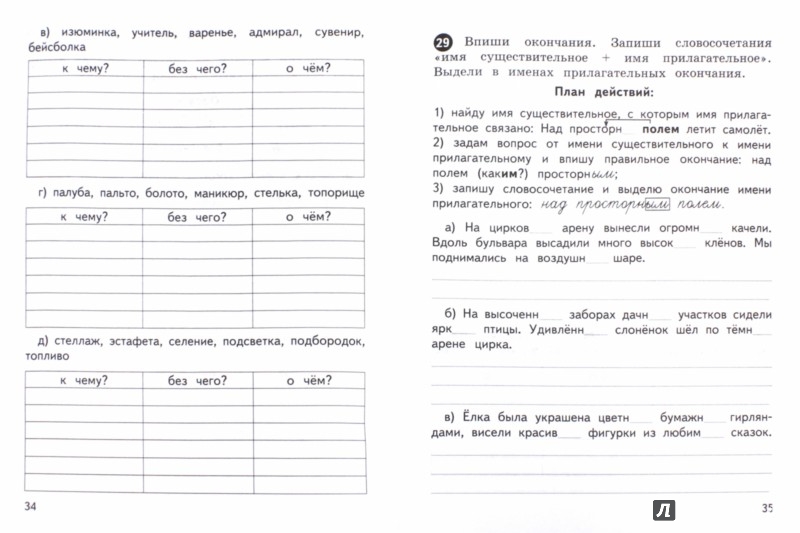 в) изюминка, учитель, варенье, адмирал, сувенир,
бейсболка
к чему? без чего? о чём?
г) палуба, пальто, болото, маникюр, стелька, топорище
к чему? без чего? о чём?
д) стеллаж, эстафета, селение, подсветка, подбородок,
топливо
к чему? без чего? о чём?
34
29 Впиши окончания. Запиши словосочетания
«имя существительное + имя прилагательное».
Выдели в именах прилагательных окончания.
План действий:
1) найду имя существительное, с которым имя прилага-
тельное связано: Над просторн__ полем летит самолёт.
2) задам вопрос от имени существительного к имени
прилагательному и впишу правильное окончание: над
полем (каким?) просторным;
3) запишу словосочетание и выделю окончание имени
прилагательного: над просторным полем.
а) На цирков__ арену вынесли огромн__ качели.
Вдоль бульвара высадили много высок__ клёнов. Мы
поднимались на воздушн__ шаре.
б) На высоченн__ заборах дачн__ участков сидели
ярк__ птицы. Удивлённ__ слонёнок шёл по тёмн__
арене цирка.
в) Ёлка была украшена цветн__ бумажн__ гирлян-
дами, висели красив__ фигурки из любим__ сказок.
Л
35